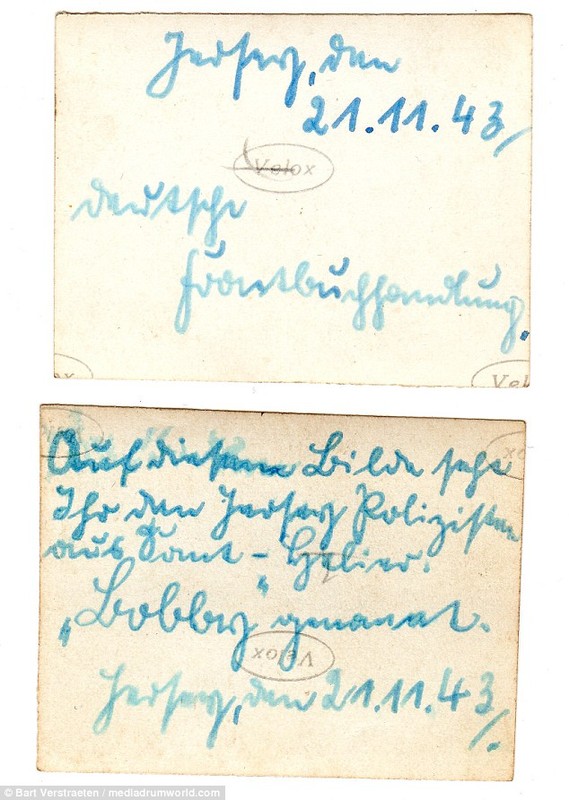 Jersey, den
21.11.43/
Velox
deutsche
Frontbuchhandlung.
ox
Vel
ox
Auf diesem Bilde seht
Ihr den Jersey Polizisten
aus Sant - Helier.
„Bobby" genannt.
Velox
Jersey, den 21.11.43/.
© Bart Verstraeten / mediadrumworld.com